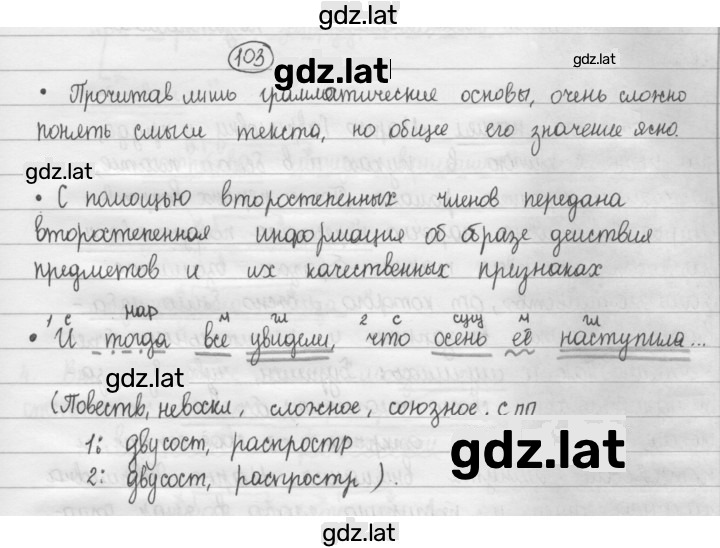 gdz.lat
103
gdz.lat
gdz.lat
• Прочитав лишь грамматические основы, очень сложно
понять смысл текста, но общее его значение ясно.
gdz.lat
• С помощью второстепенных членов передана
второстепенная информация об образе действия
предметов и их качественных признаках
1 с нар м гл 2 с сущ м гл
• И тогда все увидели, что осень её наступила...
gdz.lat
(Повеств, невоскл, сложное, союзное. СПП
1: двусост, распростр
2: двусост, распростр)..
gdz.lat
gdz.lat